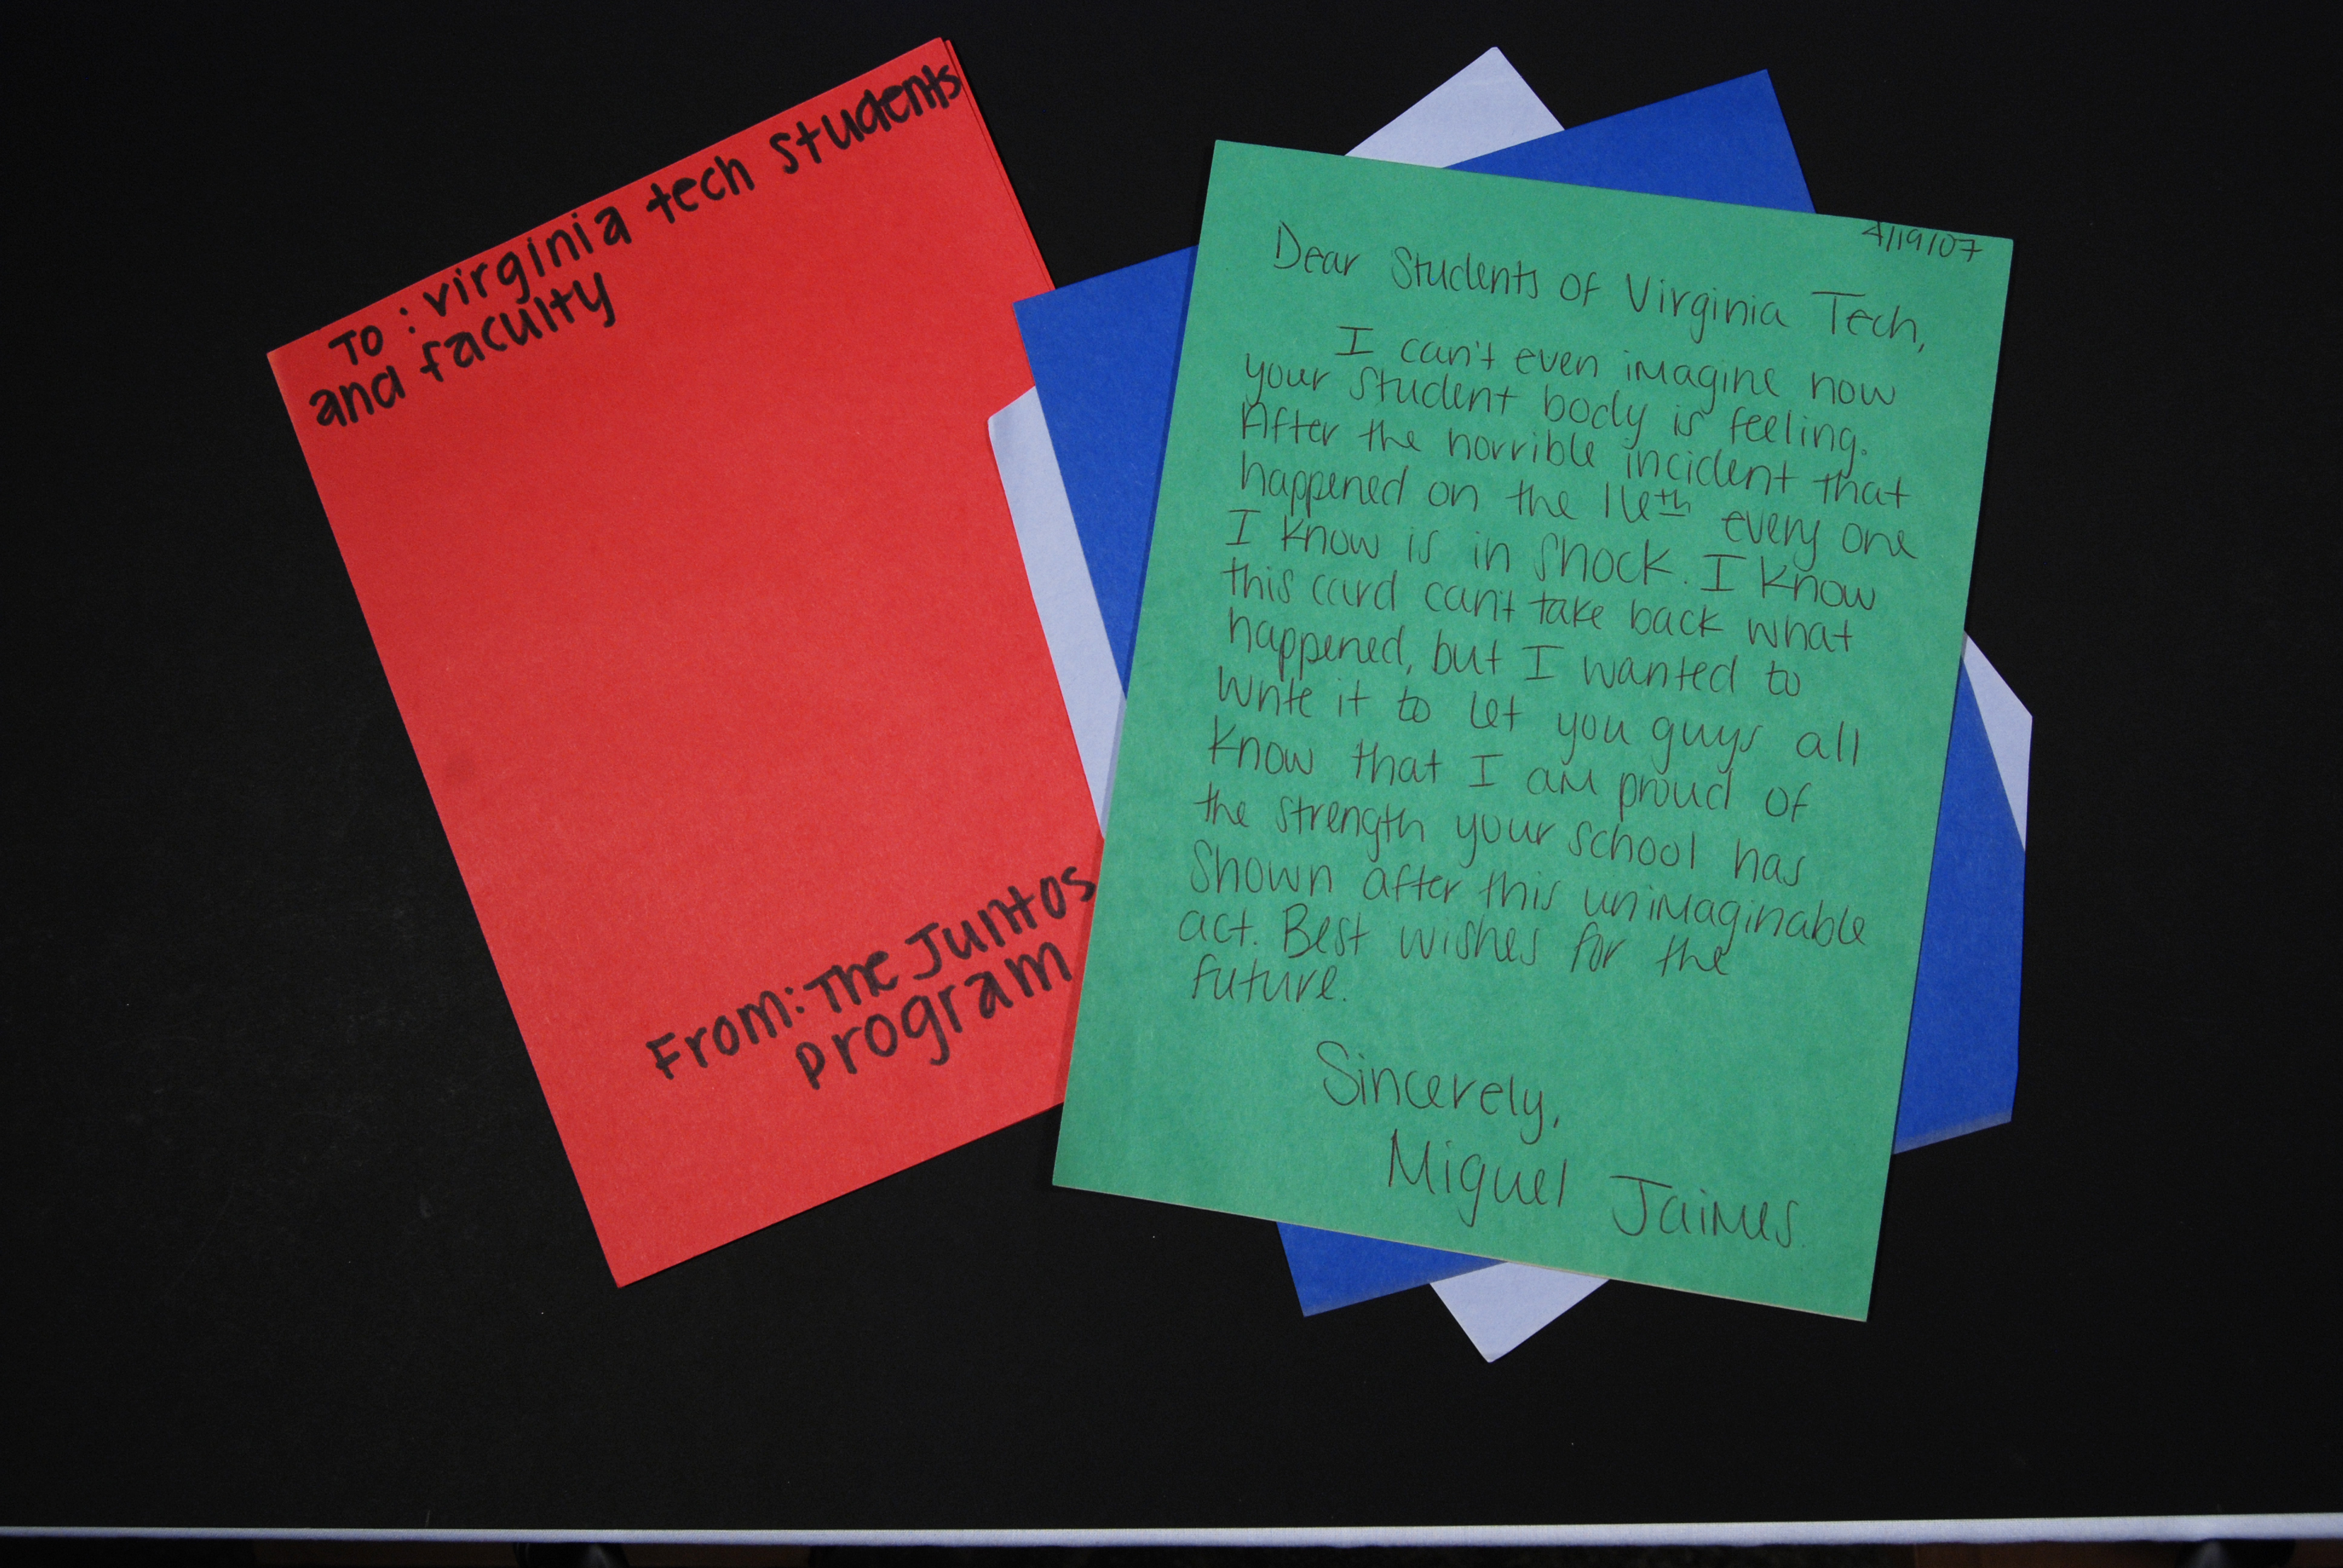 To: virginia tech students
and faculty
From: The Juntos
program
4/19/07
Dear Students of Virginia Tech,
I can't even imagine how
your student body is feeling.
After the horrible incident that
happened on the 16th every one
I know is in shock. I know
this card can't take back what
happened, but I wanted to
write it to let you guys all
know that I am proud of
the strength your school has
shown after this unimaginable
act. Best wishes for the
future.
Sincerely,
Miguel Jaimes